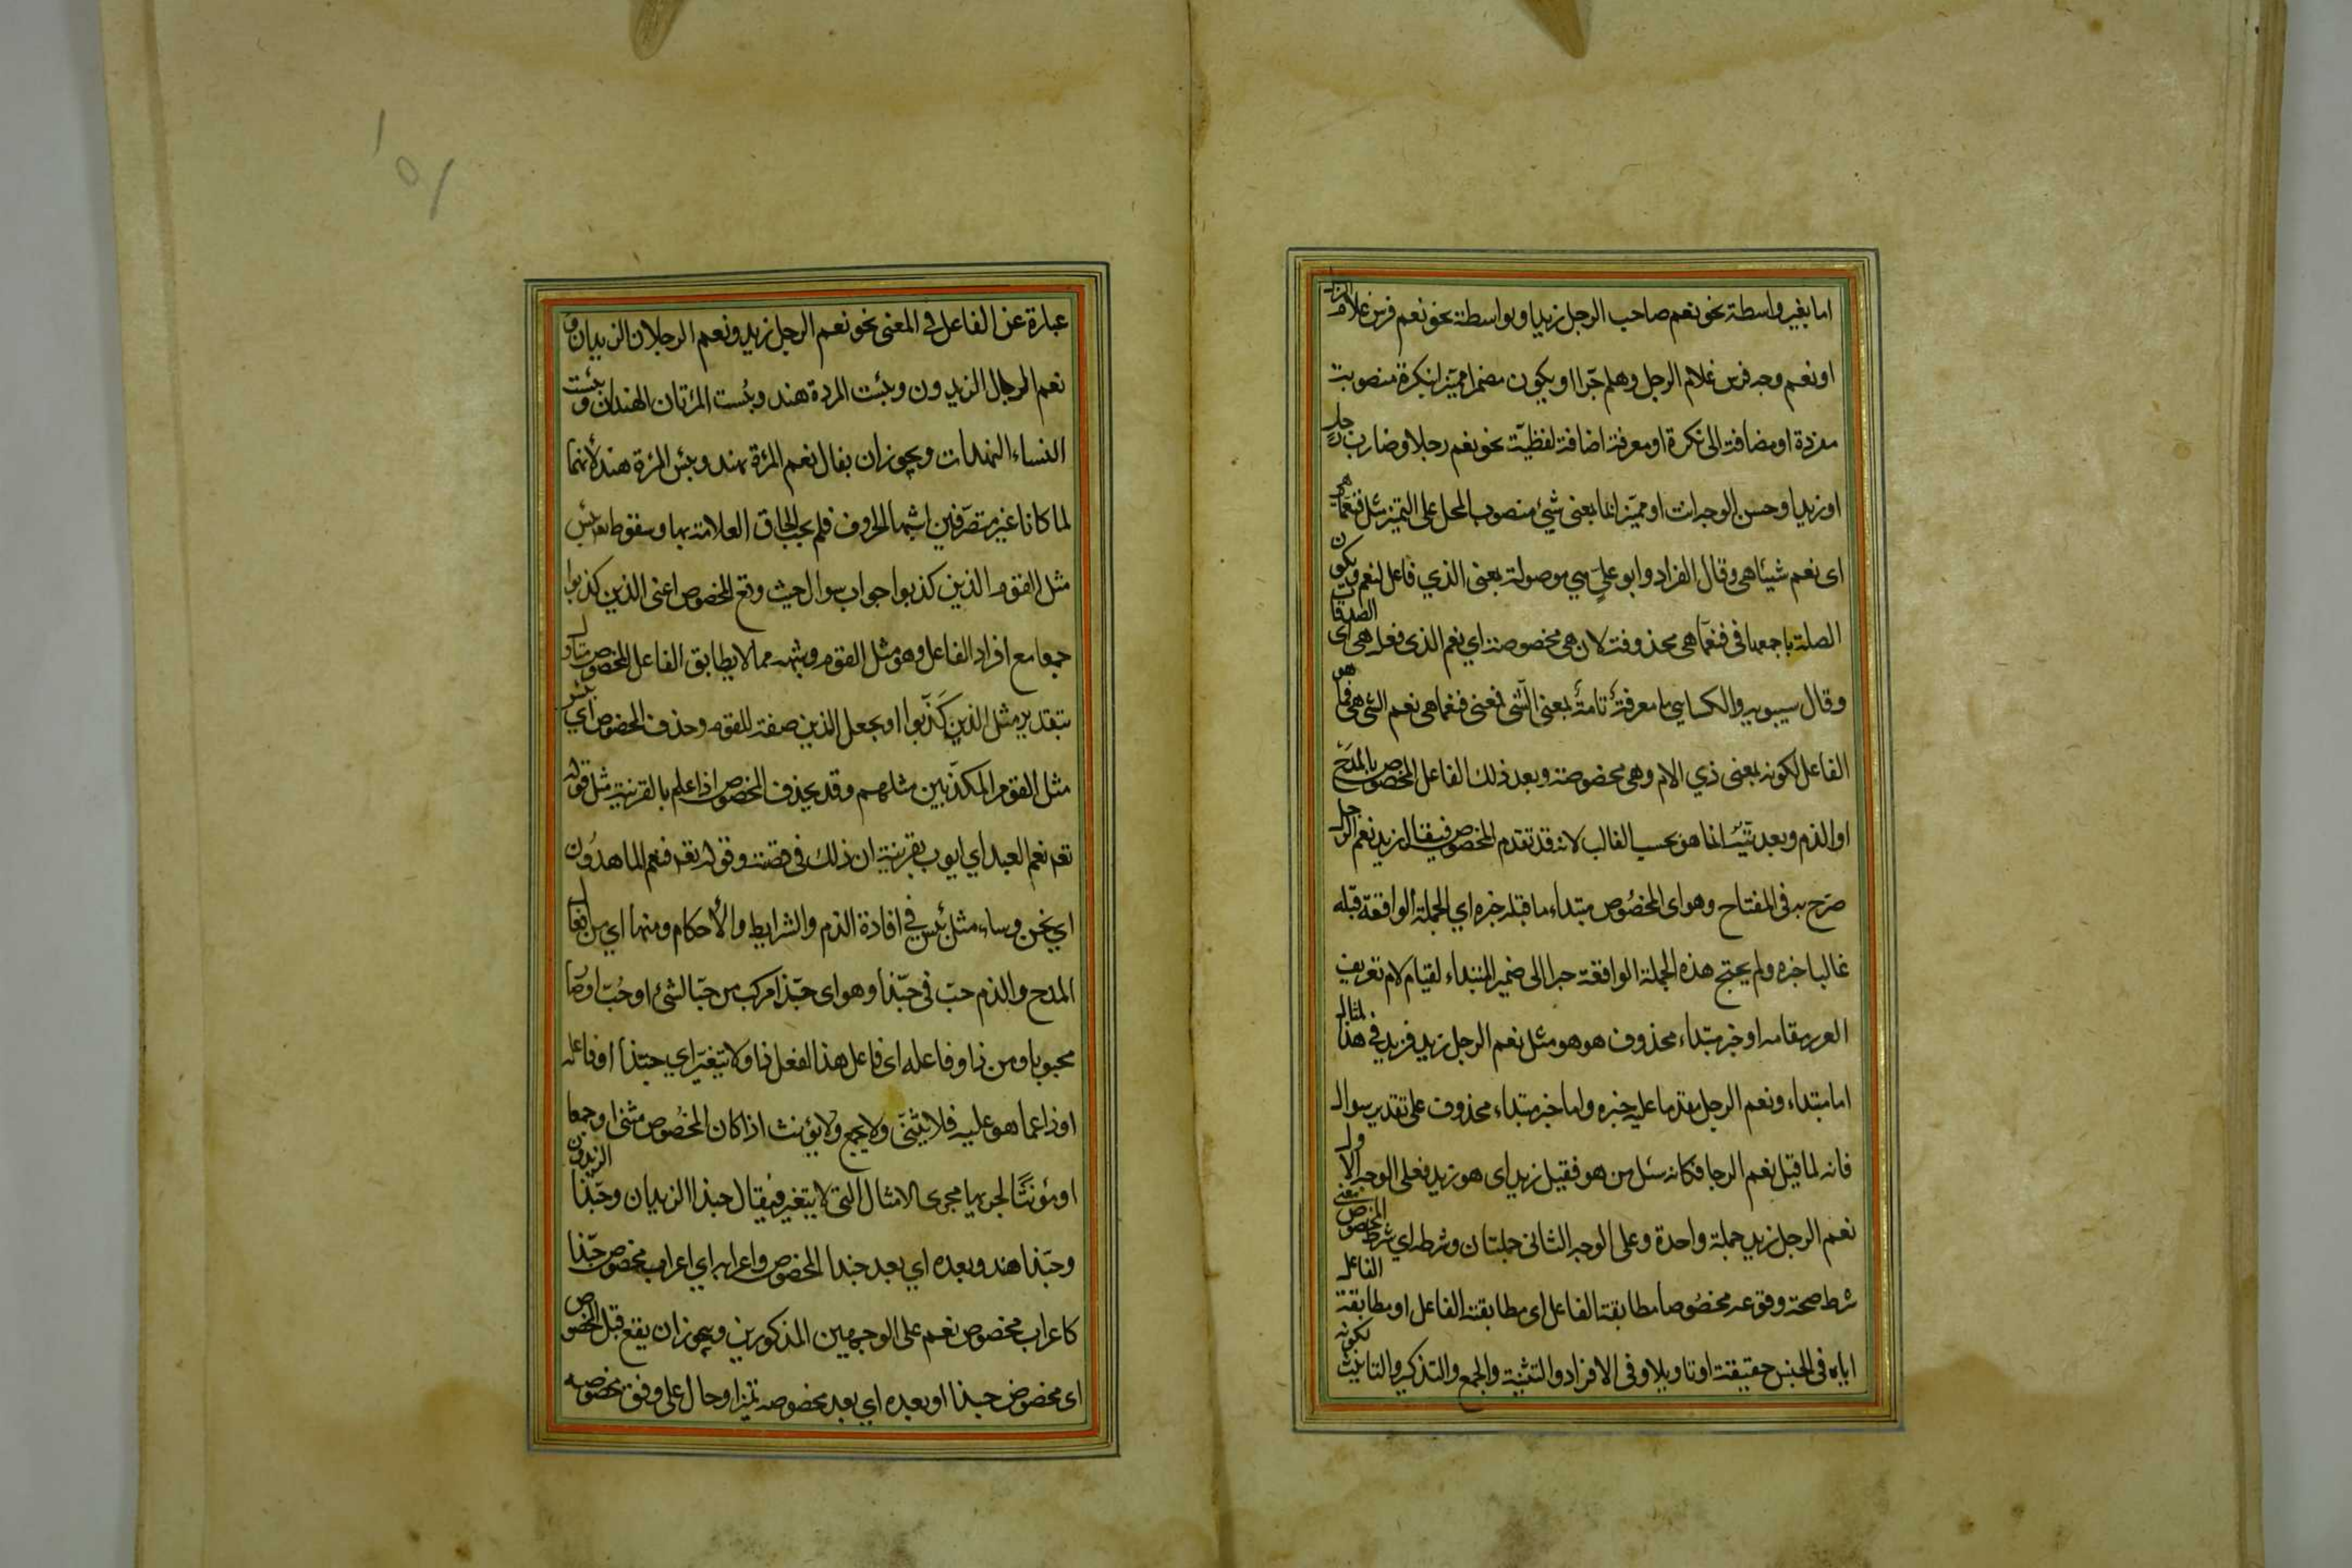 اما بغير واسطة نحو نعم صاحب الرجل زيد او بواسطة نحو نعم فرس غلام الرجل
او نعم وجه فرس غلام الرجل وهلم جرا او يكون مضمرا مميزا بنكرة منصوبة
مفردة او مضافة الى نكرة او معرفة اضافة لفظية نحو نعم رجلا وضارب رجل
او زيد او حسن الوجه انت او مميزا بما بمعنى شيئ منصوب المحل على التميز مثل فنعما هى
اى نعم شيئا هى وقال الفراء وابو علي هي موصولة بمعنى الذي فاعل لنعم ويكون
الصلة باجمعها فى فنعما هى محذوفة لان هى مخصوصة اي نعم الذى فعله هى اى الصدقات
وقال سيبويه والكسايي ما معرفة تامة بمعنى الشئ فمعنى فنعما هى نعم الشئ هى فما هو
الفاعل لكونه بمعنى ذي الام وهى مخصوصة وبعد ذلك الفاعل المخصوص بالمدح
او الذم وبعديته انما هو بحسب الغالب لانه قد تقدم المخصوص فيقال زيد نعم الرجل
صرح به فى المفتاح وهو اى المخصوص مبتداء ما قبله خبره اي الجملة الواقعة قبله
غالبا خبره ولم يحتج هذه الجملة الواقعة خبرا الى ضمير المبتداء لقيام لام تعريف
العهد مقامه او خبر مبتداء محذوف هو هو مثل نعم الرجل زيد فزيد فى هذا المثال
اما مبتداء ونعم الرجل مقدما عليه خبره واما خبر مبتداء محذوف على تقدير سوال
فانه لما قيل نعم الرجل فكانه سئل من هو فقيل زيد اى هو زيد فعلى الوجه الاول
نعم الرجل زيد جملة واحدة وعلى الوجه الثانى جملتان وشرطه اي شرط المخصوص يعنى
شرط صحة وقوعه مخصوصا مطابقة الفاعل اى مطابقته الفاعل او مطابقة الفاعل
اياه فى الجنس حقيقة او تاويلا وفى الافراد والتثنية والجمع والتذكير والتانيث لكونه
عبارة عن الفاعل فى المعنى نحو نعم الرجل زيد ونعم الرجلان الزيدان و
نعم الرجال الزيدون وبئست المرءة هند وبئست المرءتان الهندان وبئست
النساء الهندات ويجوز ان يقال نعم المرءة هند وبئس المرءة هند لانهما
لما كانا غير متصرفين اشبها الحروف فلم يجب الحاق العلامة بهما وسقوط بئس
مثل القوم الذين كذبوا جواب سوال حيث وقع المخصوص اعنى الذين كذبوا
جمعا مع افراد الفاعل وهو مثل القوم وشبهه مما لا يطابق الفاعل المخصوص متاول
بتقدير مثل الذين كذبوا او بجعل الذين صفة للقوم وحذف المخصوص اي بئس
مثل القوم المكذبين مثلهم وقد يحذف المخصوص اذا علم بالقرينة مثل قوله
تعه نعم العبد اي ايوب بقرينة ان ذلك فى قصته وقوله تعه فنعم الماهدون
اي نحن وساء مثل بئس في افادة الذم والشرايط والأحكام ومنها اي من افعال
المدح والذم حب فى حبذا وهو اى حبذا مركب من حب الشئ او حب اذا صار
محبوبا ومن ذا وفاعله اى فاعل هذا الفعل ذا ولا يتغير اي حبذا او فاعله
او ذا عما هو عليه فلا يثنى ولا يجمع ولا يؤنث اذا كان المخصوص مثنى او جمعا
او مؤنثا لجريها مجرى الامثال التى لا يتغير فيقال حبذا الزيدان وحبذا الزيدون
وحبذا هند وبعده اي بعد حبذا المخصوص واعرابه اي اعراب مخصوص حبذا
كاعراب مخصوص نعم على الوجهين المذكورين ويجوز ان يقع قبل المخصوص
اى مخصوص حبذا او بعده اي بعد مخصوصه تميز او حال على وفق مخصوصه